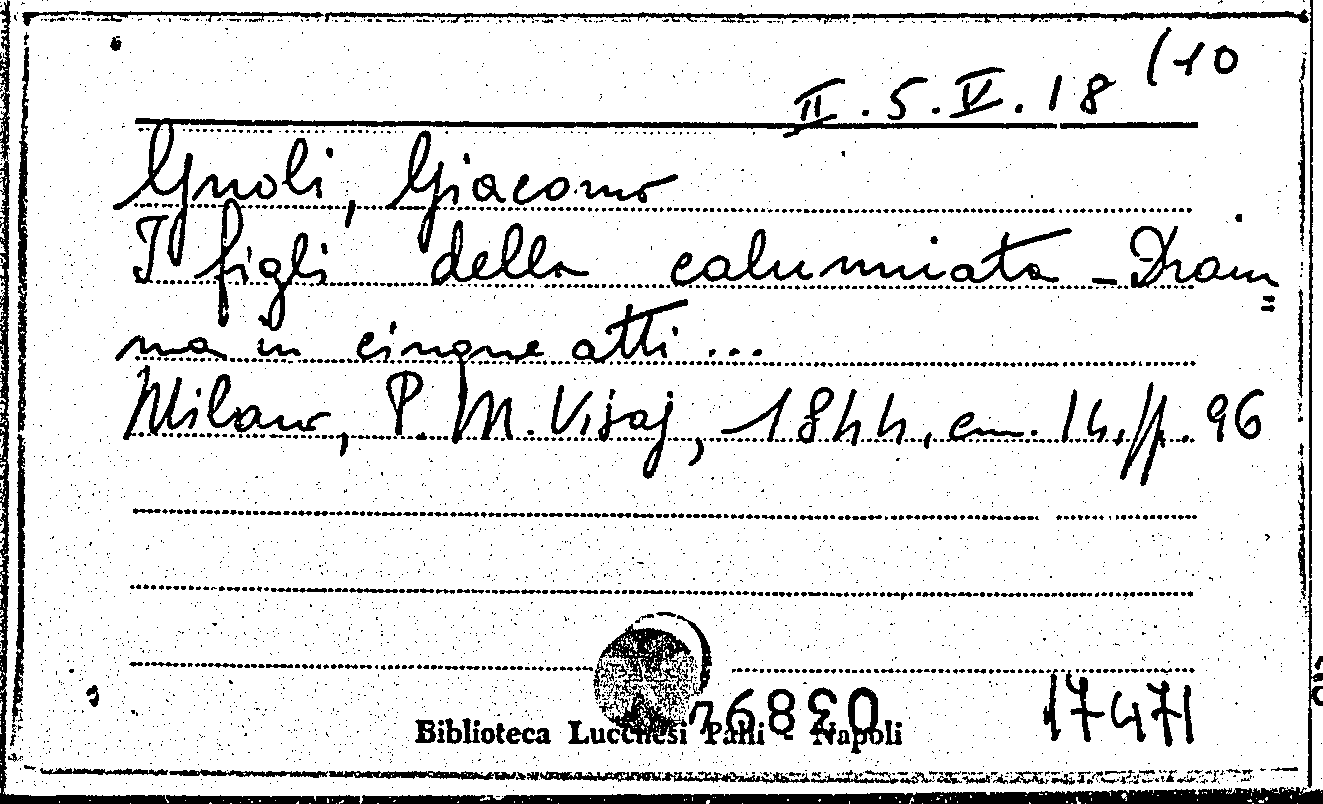 II.5.V.18 (10
Gnoli, Giacomo
I figli della calunniata - Dram=
ma in cinque atti...
Milano, P. M. Visaj, 1844, cm. 14, pp. 96
76830 17471
Biblioteca Lucchesi Palli - Napoli